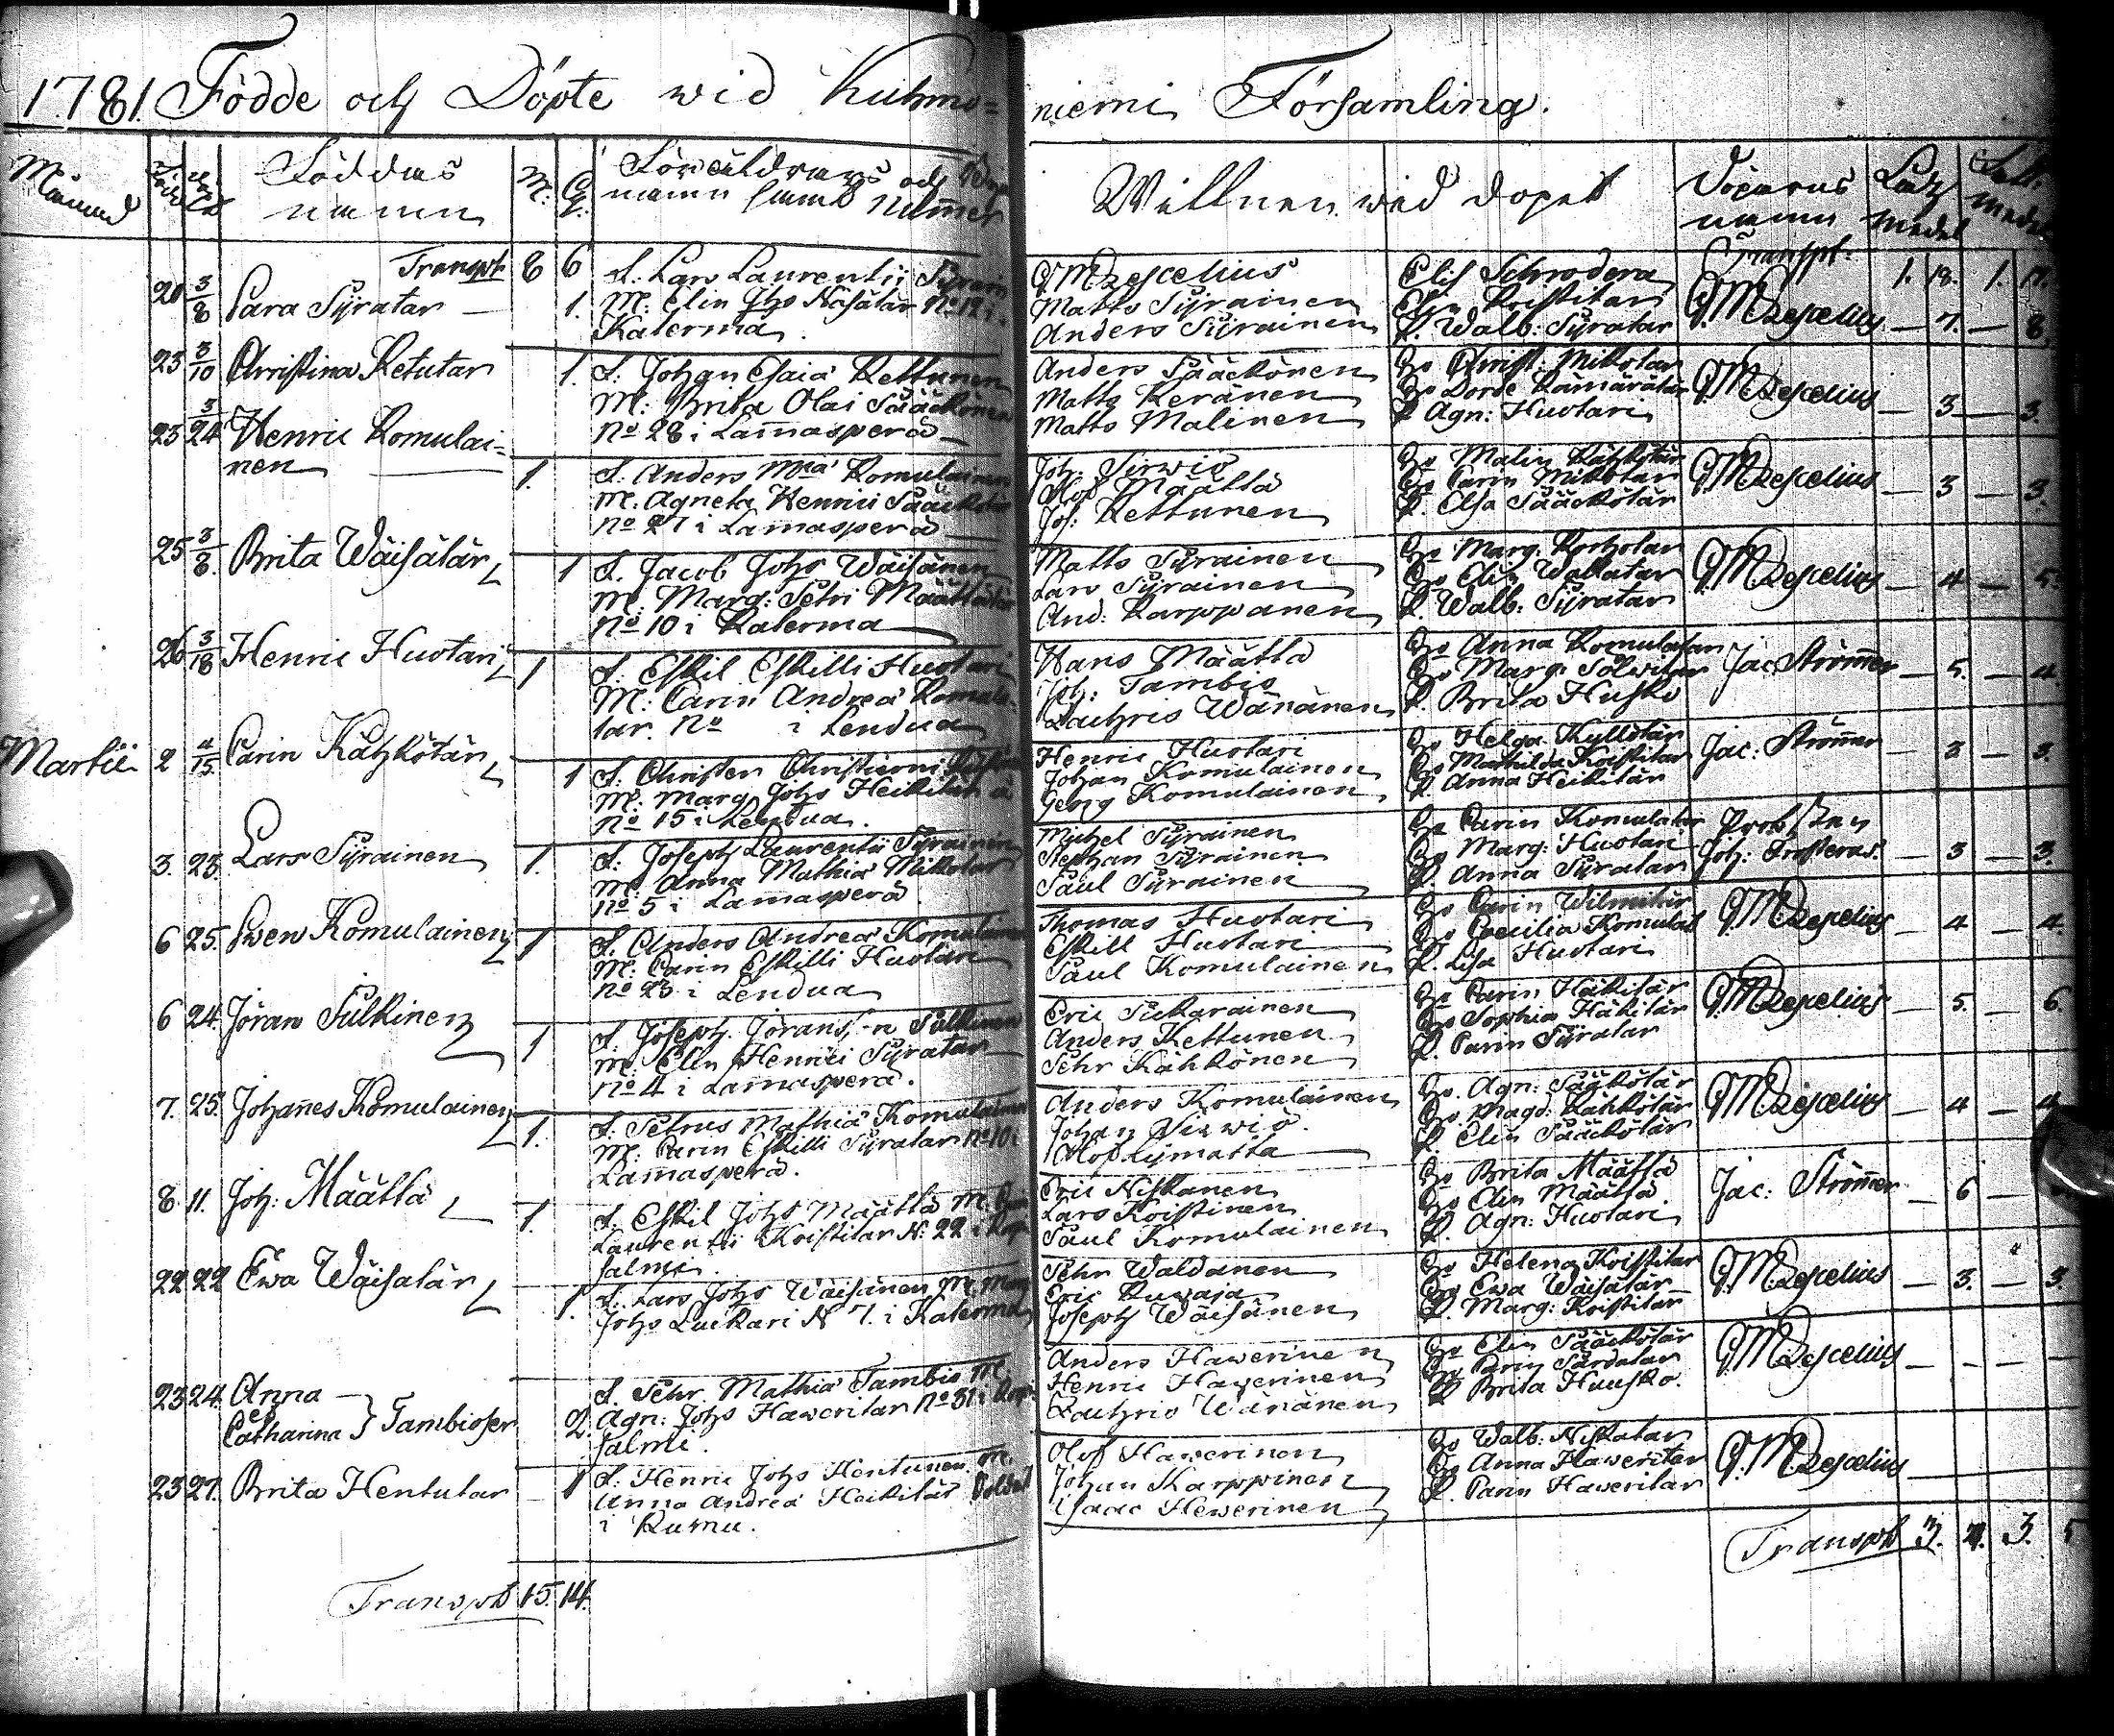 1781. Födde och Döpte wid Kuhmo=
niemi Församling.
Månad
Född
Döpt
Föddas namn
M:
Q:
Föräldrars och Byn
namn samt Numer
Wittnen wid dopet
Döparens namn
Lädh medel
Transpt: 8 6
Transpt: 1. 18. 1. 17.
20 3/8 Sara Syratar 1.
F. Lars Laurentii Syrain
M: Elin Johs Näsätär No 12 i
Katerma.
G M Zescelius
Matts Syrainen
Anders Syrainen
Elis Schrodera
Elsa Koistitar
P. Walb: Syratar
G M Zescelius — 7. — 8.
23 3/10 Christina Ketutar 1.
F. Johan Esaiä Kettunen
M: Brita Olai Pääckönen
No 28 i Lam̄asperä
Anders Pääckönen
Matts Keränen
Matts Malinen
Hu Christ: Mikotar
Hu Dorde Kämärätar
P Agn: Huotari
G M Zescelius — 3 — 3.
23 3/24 Henric Romulai=
nen 1.
F. Anders Mciä Komulainen
M. Agneta Henrici Pääckötär
No 27 i Lamasperä
Joh: Sirwiö
Olof Määttä
Jos: Kettunen
Hu Malin Kähkötär
Hu Carin Mikotar
P. Elsa Pääckötär
G M Zescelius — 3 — 3.
25 3/8. Brita Wäisätär 1
F. Jacob Johs Wäisänen
M: Marg: Petri Määttätär
No 10 i Katerma
Matts Syrainen
Lars Syrainen
And: Karppanen
Hu Marg: Korhotar
Hu Elin Wallatar
P. Walb: Syratar
G M Zescelius — 4 — 5.
26 3/18 Henric Huotari 1
F. Eskil Eskilli Huotari
M: Carin Andreä Komula
tar. No i Lendua
Hans Määttä
Joh: Tambio
Zachris Wänänen
Hu Anna Komulatar
Hu Marg: Polwitar
P. Brita Husko
Jac: Ström̄er — 5. — 4.
Martii 2 4/15 Carin Kähkötär 1
F. Christer Christierni
M: Marg Johs Heikitär
No 15 i Lendua.
Henric Huotari
Johan Komulainen
Georg Komulainen
Hu Helga Kyllötär
Hu Mathilda Koistitar
P Anna Heikitär
Jac: Ström̄er — 3 — 3.
3. 23. Lars Syrainen 1.
F. Joseph Laurentii Syrainen
M: Anna Mathiä Mikotar
No 5 i Lamasperä
Michel Syrainen
Stephan Syrainen
Paul Syrainen
Hu Carin Komulatar
Hu Marg: Huotari
P. Anna Syratar
Probsten
Joh: Frosterus. — 3 — 3.
6 25. Swen Komulainen 1
F. Anders Andreä Komulainen
M: Carin Eskilli Huotari
No 23 i Lendua
Thomas Huotari
Eskill Huotari
Paul Komulainen
Hu Carin Wilmitär
Hu Caecilia Komulat
P. Lisa Huotari
G M Zescelius — 4 — 4.
6 24. Jöran Pulkinen 1
F. Joseph Jörans=n Pulkinen
M: Elin Henrici Syratar
No 4 i Lam̄asperä.
Eric Pickarainen
Anders Kettunen
Pehr Kähkönen
Hu Carin Häkitär
Hu Sophia Häkitär
P. Carin Syratar
G M Zescelius — 5. — 6.
7. 25. Johan̄es Komulainen 1.
F. Petrus Mathiä Komulainen
M: Carin Eskilli Syratar No 10 i
Lamasperä.
Anders Komulainen
Johan Sirwiö.
Olof Lymatta
Hu Agn: Pääkötär
Hu Magd: Kähkötär
P. Elin Pääckötär
G M Zescelius — 4 — 4
8 11. Joh: Määttä 1.
F. Eskil Johs Määttä M: Carin
Laurentii Koistitar N: 22 i Rep
salmi.
Eric Niskanen
Lars Koistinen
Paul Komulainen
Hu Brita Määttä
Hu Elin Määttä.
P. Agn: Huotari
Jac: Ström̄er — 6 —
22 22 Ewa Wäisatär 1.
F. Lars Johs Wäisänen M: Marg
Johs Luckari N 7. i Katerma
Pehr Waldanen
Eric Ruwaja
Joseph Wäisänen
Hu Helena Koistitar
Hu Ewa Wäisätär
P. Marg: Koistitar
G M Zescelius — 3. — 3.
23 24. Anna
et
Catharina } Tambioser 2.
F. Pehr Mathiä Tambio M:
Agn: Johs Haweritar No 31 i Rep
salmi.
Anders Hawerinen
Henric Hawerinen
Zachris Wänänen
Hu Elin Pääckötär
Hu Carin Pardatar
P Brita Huusko.
G M Zescelius — — — —
23 27. Brita Hentutar 1
F. Henric Johs Hentunen M.
Anna Andreä Heikitär Soldat
i Kuma.
Olof Hawerinen
Johan Karppinen
Isaac Hewerinen
Hu Walb: Niskatar
Hu Anna Haweritar
P. Carin Haweritar
G M Zescelius —
Transpt 15. 14.
Transpt 3. 4. 3. 5